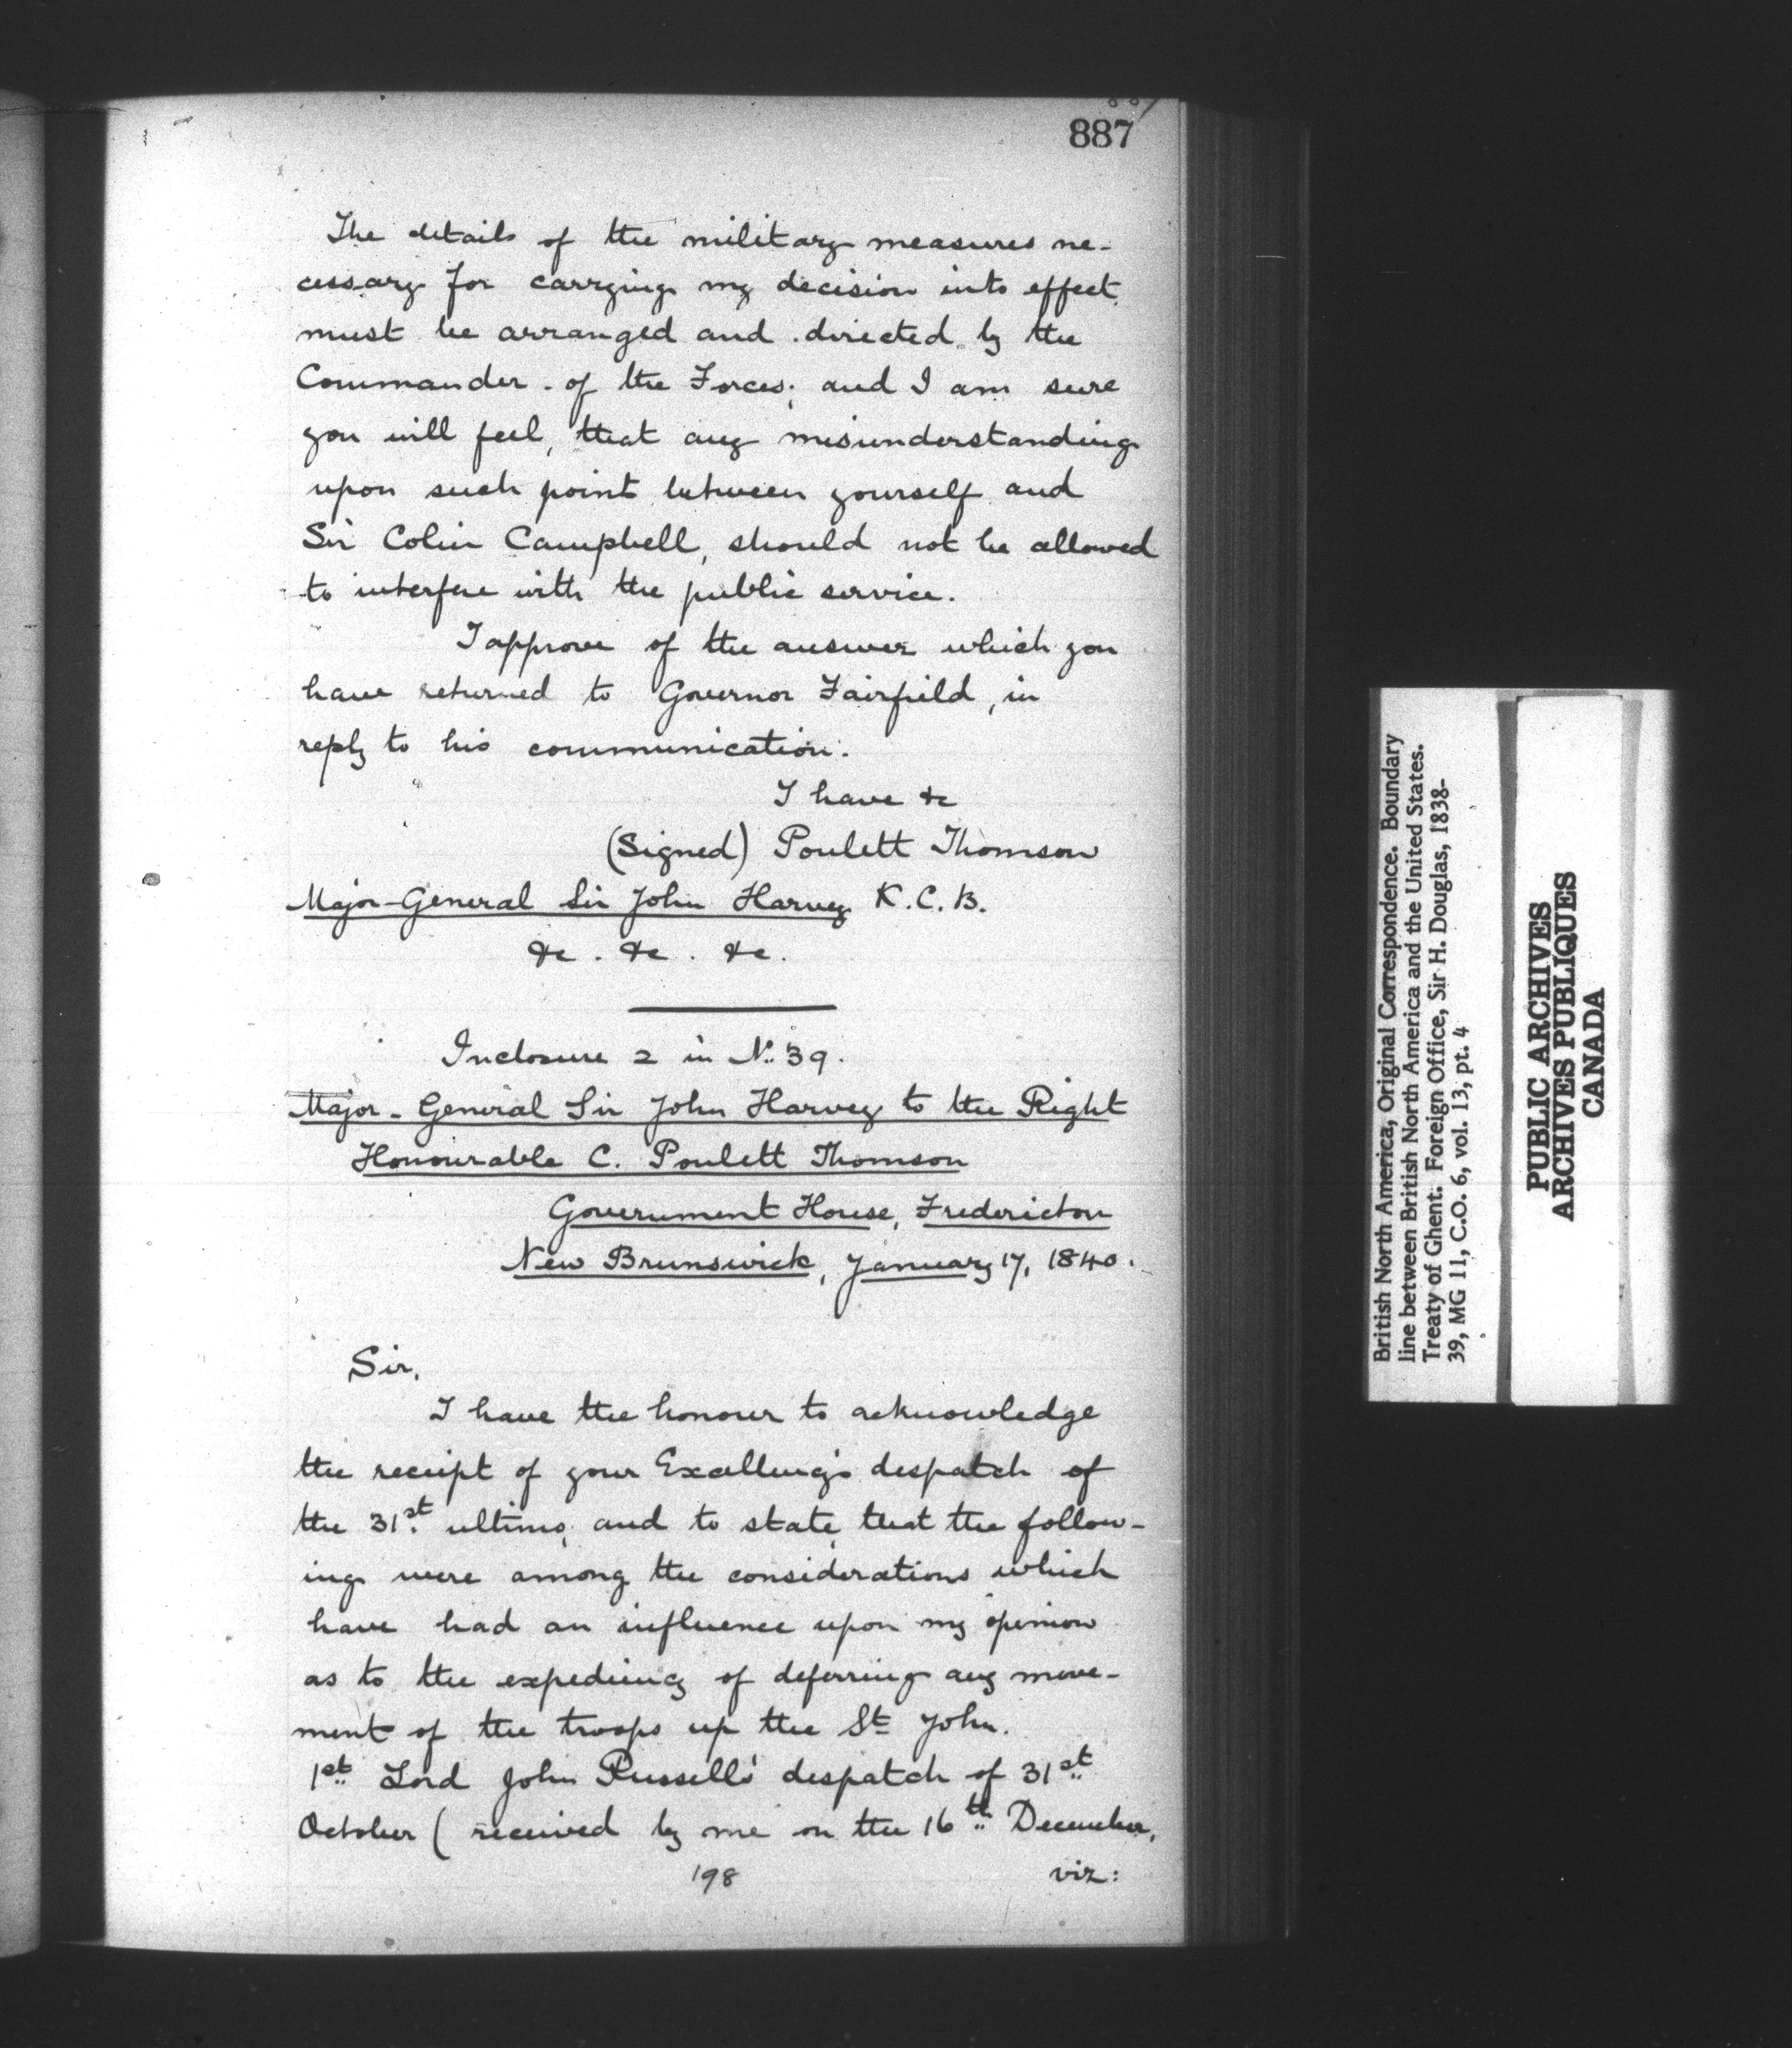 887
The details of the military measures ne-
cessary for carrying my decision into effect
must be arranged and directed by the
Commander of the Forces; and I am sure
you will feel, that any misunderstanding
upon such point between yourself and
Sir Colin Campbell, should not be allowed
to interfere with the public service.
I approve of the answer which you
have returned to Governor Fairfield, in
reply to his communication.
I have &c
(Signed) Poulett Thomson
Major-General Sir John Harvey K.C.B.
&c. &c. &c.
Inclosure 2 in No. 39.
Major-General Sir John Harvey to the Right
Honourable C. Poulett Thomson
Government House, Fredericton
New Brunswick, January 17, 1840.
Sir,
I have the honour to acknowledge
the receipt of your Excellency's despatch of
the 31st ultimo, and to state, that the follow-
ing were among the considerations which
have had an influence upon my opinion
as to the expediency of deferring any move-
ment of the troops up the St John.
1st Lord John Russell's despatch of 31st
October (received by me on the 16th December,
198
viz:
British North America, Original Correspondence. Boundary
line between British North America and the United States.
Treaty of Ghent. Foreign Office, Sir H. Douglas, 1838-
39, MG 11, C.O. 6, vol. 13, pt. 4
PUBLIC ARCHIVES
ARCHIVES PUBLIQUES
CANADA